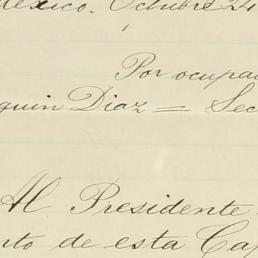 México. Octubre 24
Por ocupac
quin Diaz = Sec
Al Presidente
nto de esta Cap